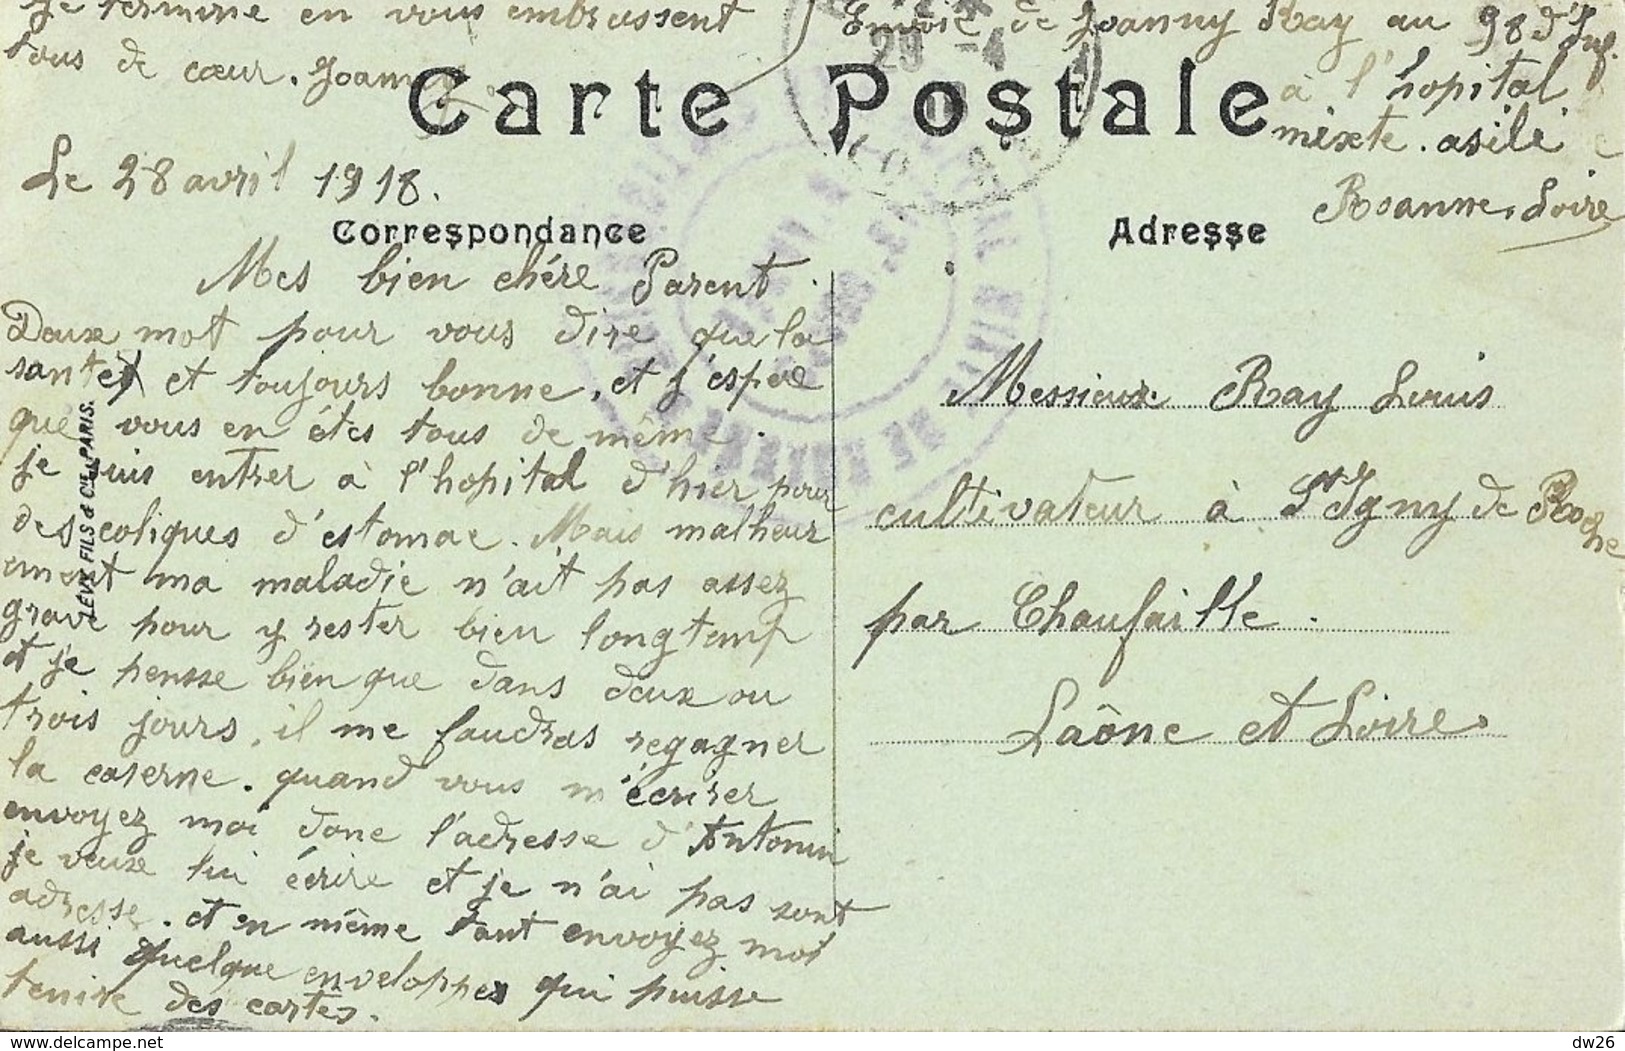 je termine en vous embrassent
tous de cœur. Joanny
Envoie de Joanny Ray au 98 d'Inf.
à l'hopital
mixte. asile
Roanne. Loire
29 -4
Carte Postale
Le 28 avril 1918.
Correspondance
Adresse
Mes bien chére Parent.
Deux mot pour vous dire que la
sante et toujours bonne. et j'espere
que vous en étes tous de même.
je suis entrer à l'hopital d'hier pour
des coliques d'estomac. Mais malheur
ement ma maladie n'ait pas assez
grave pour y rester bien longtemp
et je pensse bien que dans deux ou
trois jours, il me faudras regagner
la caserne. quand vous m'écrirer
envoyez moi donc l'adresse d'Antonin
je veux lui écrire et je n'ai pas sont
adresse. et en même tant envoyez moi
aussi quelque enveloppes qui puisse
tenire des cartes.
Messieux Ray Louis
cultivateur à St Igny de Roche
par Chaufaille.
Saône et Loire
LÉVY FILS & Cie PARIS.
delcampe.net
dw26